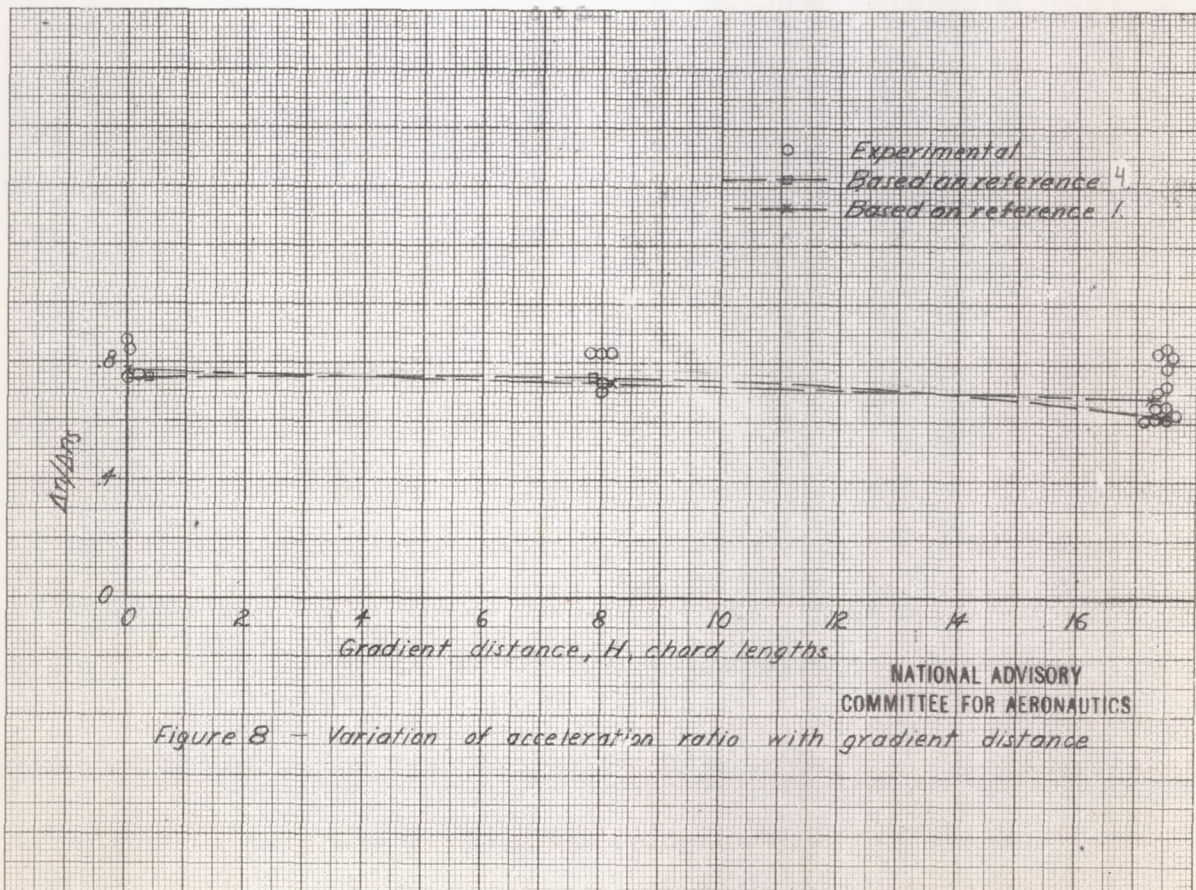 Experimental
Based on reference 4.
Based on reference 1.
.8
.4
0
Δn/Δns
0 2 4 6 8 10 12 14 16
Gradient distance, H, chord lengths
NATIONAL ADVISORY
COMMITTEE FOR AERONAUTICS
Figure 8 — Variation of acceleration ratio with gradient distance